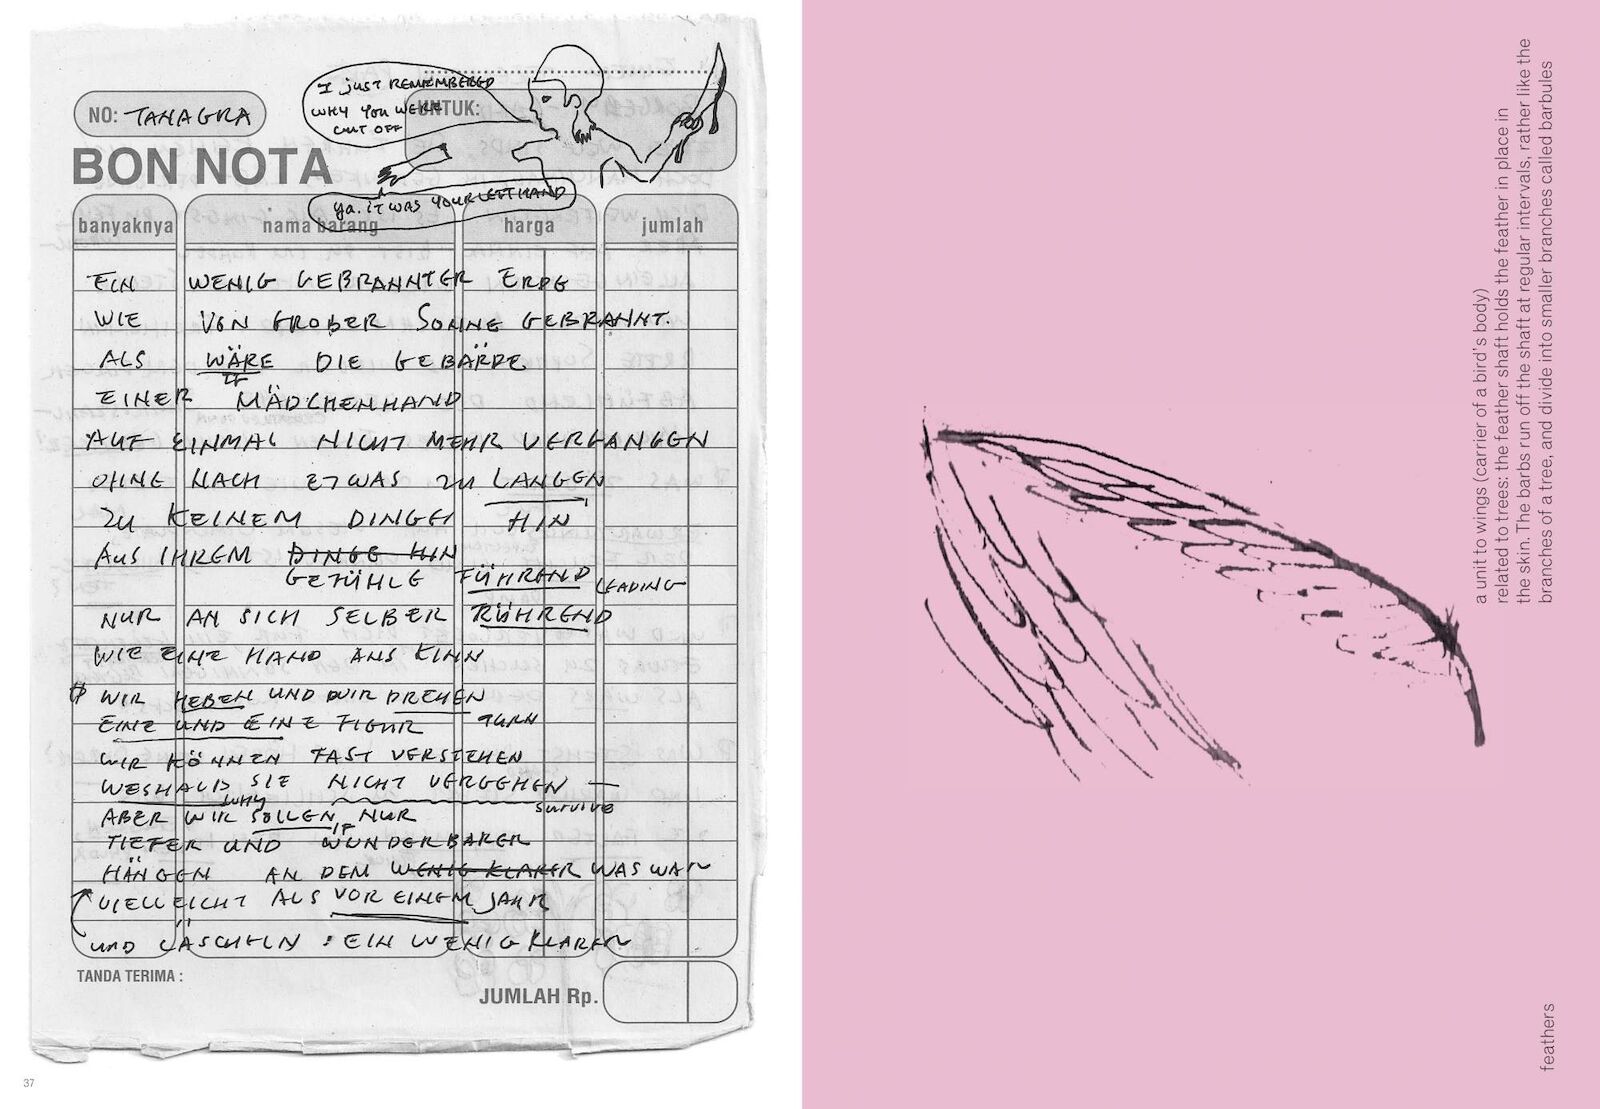 I JUST REMEMBERED
WHY YOU WERE
CUT OFF
UNTUK:
NO: TANAGRA
BON NOTA
ya. IT WAS YOUR LEFT HAND
banyaknya nama barang harga jumlah
EIN WENIG GEBRANNTER ERDE
WIE VON GROßER SONNE GEBRANNT.
ALS WÄRE DIE GEBÄRDE
IF
EINER MÄDCHENHAND
AUF EINMAL NICHT MEHR VERGANGEN
OHNE NACH ETWAS ZU LANGEN
ZU KEINEM DINGE HIN
AUS IHREM DINGE HIN
GEFÜHLE FÜHREND LEADING
NUR AN SICH SELBER RÜHREND
WIE EINE HAND ANS KINN
WIR HEBEN UND WIR DREHEN
EINE UND EINE FIGUR TURN
WIR KÖNNEN FAST VERSTEHEN
WESHALB SIE NICHT VERGEHEN —
WHY SURVIVE
ABER WIR SOLLEN NUR
IF
TIEFER UND WUNDERBARER
HÄNGEN AN DEM WENIG KLARER WAS WAR
VIELLEICHT ALS VOR EINEM JAHR
UND LÄSCHELN : EIN WENIG KLARER
TANDA TERIMA :
JUMLAH Rp.
37
a unit to wings (carrier of a bird's body)
related to trees: the feather shaft holds the feather in place in
the skin. The barbs run off the shaft at regular intervals, rather like the
branches of a tree, and divide into smaller branches called barbules
feathers